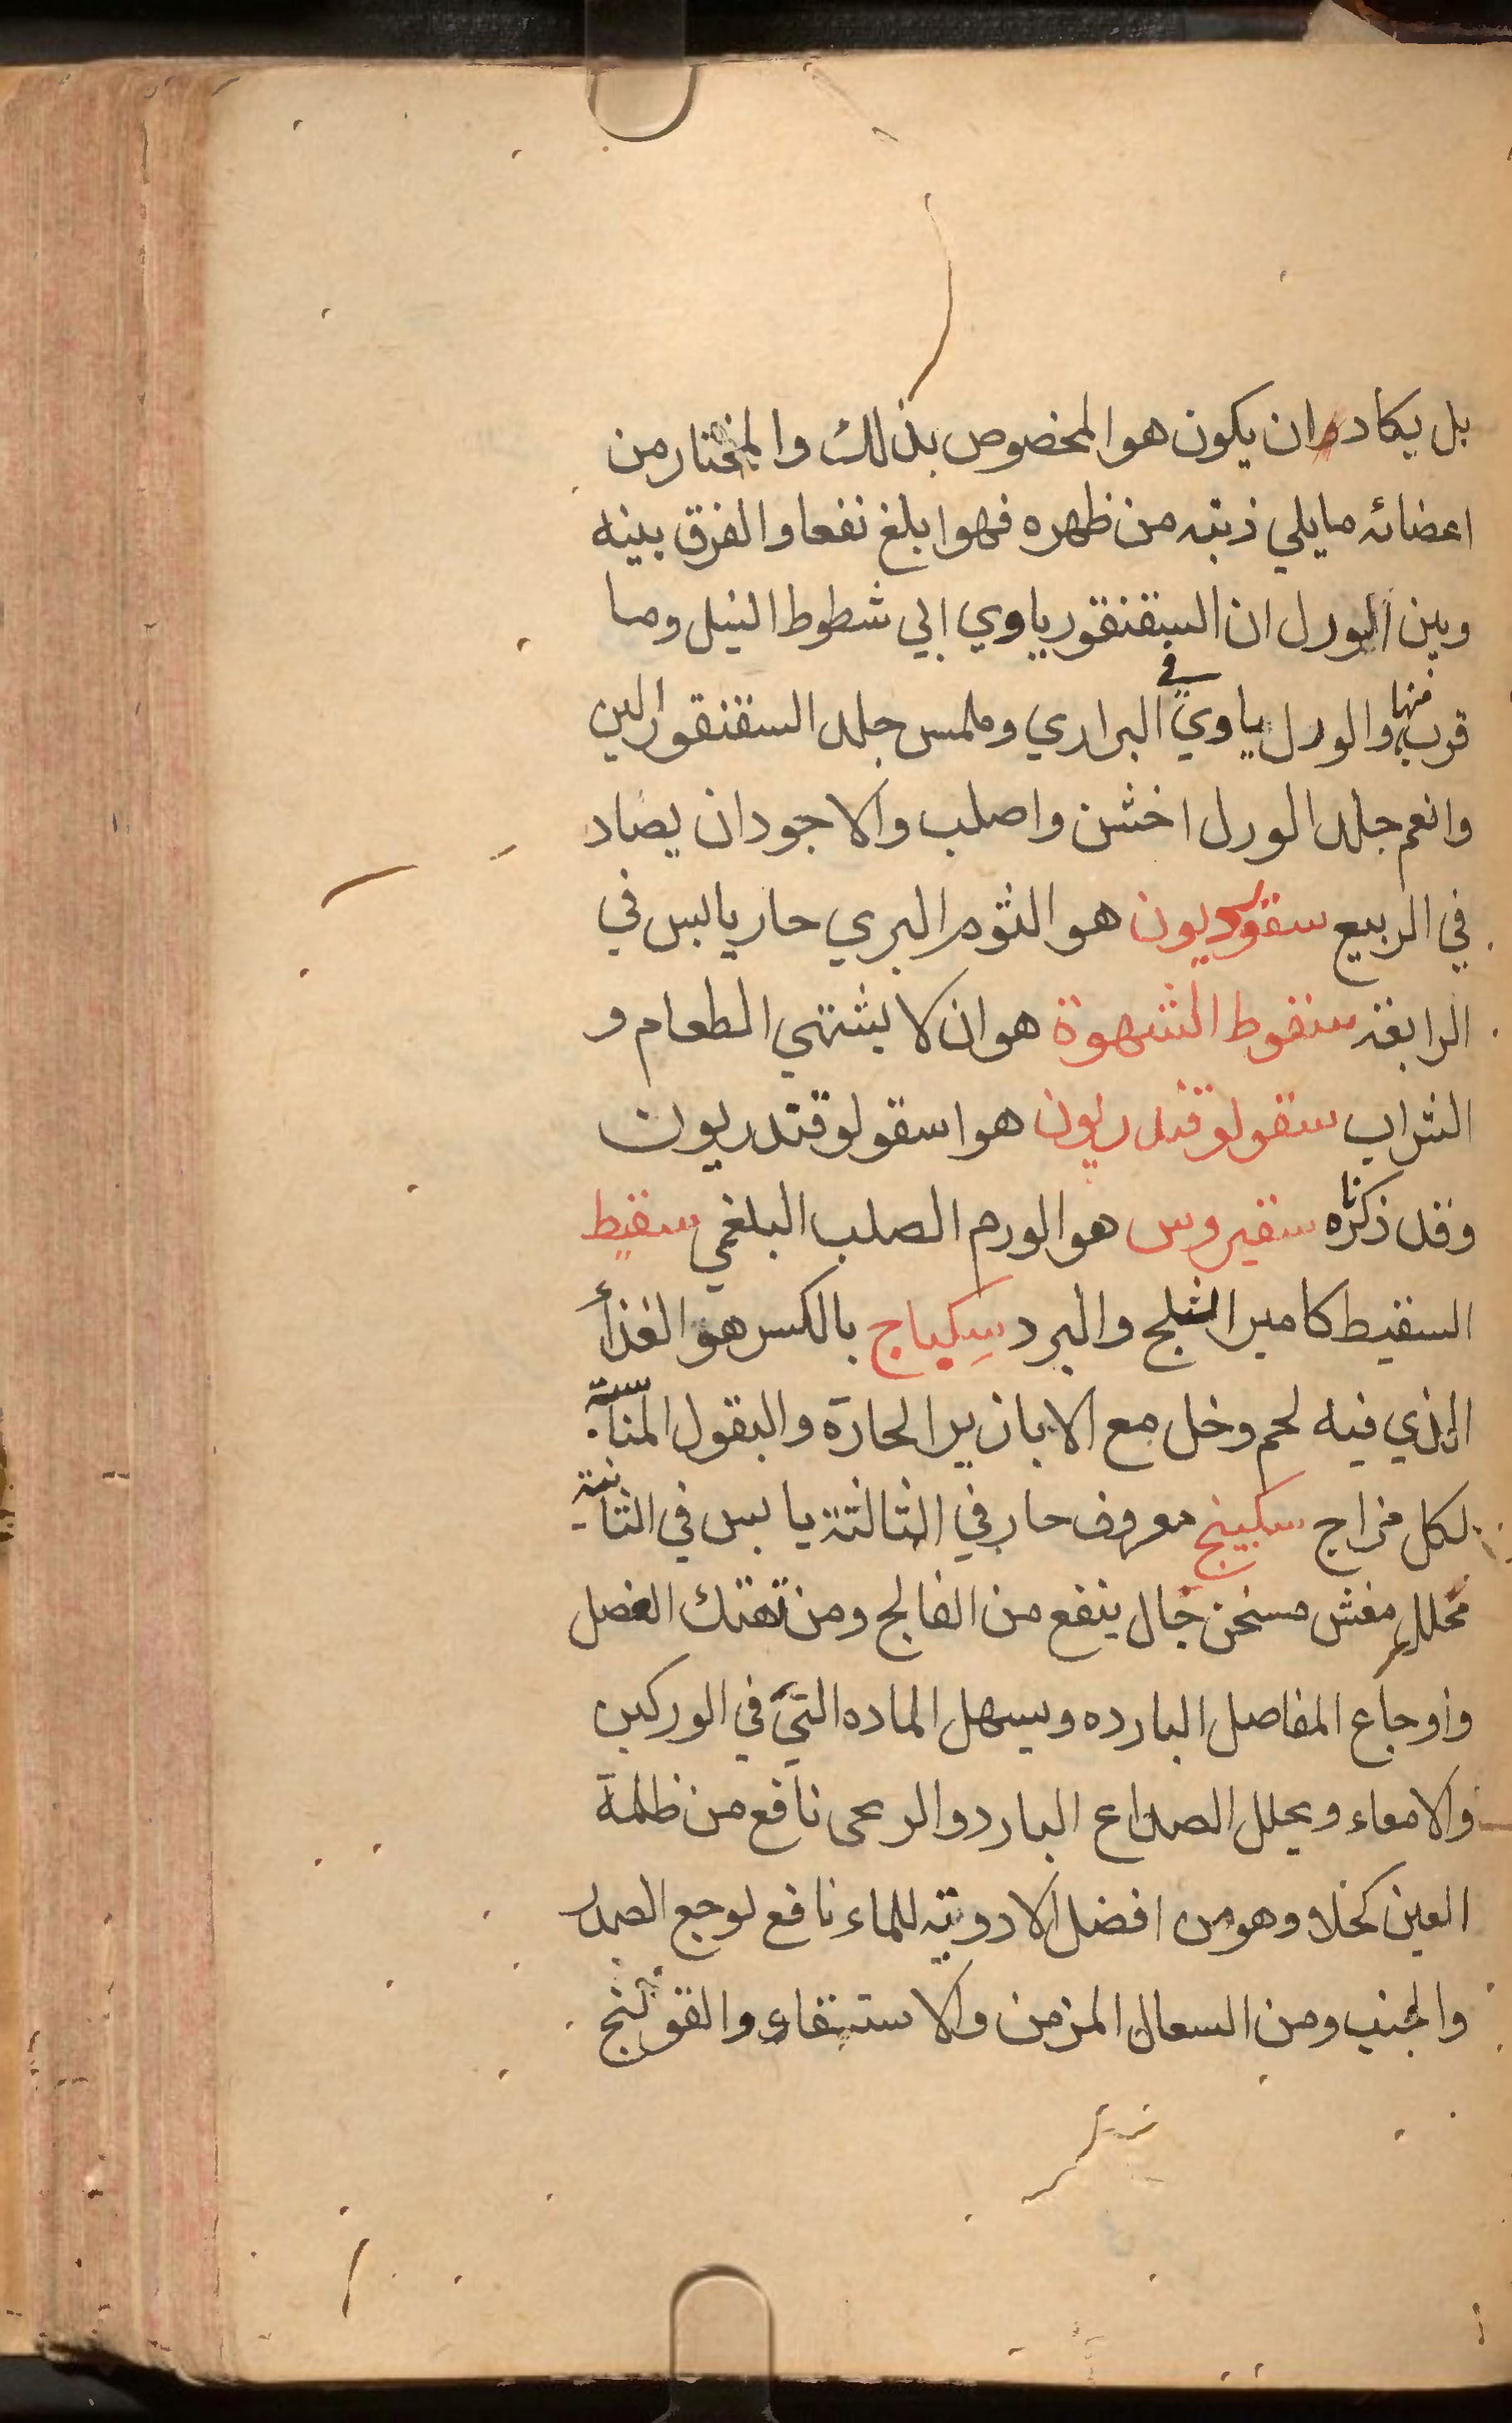 بل يكاد ان يكون هو المخصوص بذلك والمختار من
اعضائه مايلي ذنبه من ظهره فهو ابلغ نفعا والفرق بينه
وبين الورل ان السقنقور ياوي الي شطوط النيل وما
قرب منها والورل ياوي في البراري وملمس جلد السقنقور الين
وانعم جلد الورل اخشن واصلب والاجود ان يصاد
في الربيع سقورديون هو الثوم البري حار يابس في
الرابعة سقوط الشهوة هو ان لا يشتهي الطعام و
الشراب سقولوقندريون هو اسقولوقندريون
وقد ذكرناه سقيروس هو الورم الصلب البلغمي سقيط
السقيط كامير الثلج والبرد سِكباج بالكسر هو الغذاء
الذي فيه لحم وخل مع الابازير الحارة والبقول المناسبة
لكل مزاج سكبينج معروف حار في الثالثة يابس في الثانية
محلل مفش مسخن جال ينفع من الفالج ومن تهتك العضل
واوجاع المفاصل البارده ويسهل الماده التي في الوركين
والامعاء ويحلل الصداع البارد والريحى نافع من ظلمة
العين كحلا وهو من افضل الادوية للماء نافع لوجع الصدر
والجنب ومن السعال المزمن والاستسقاء والقولنج